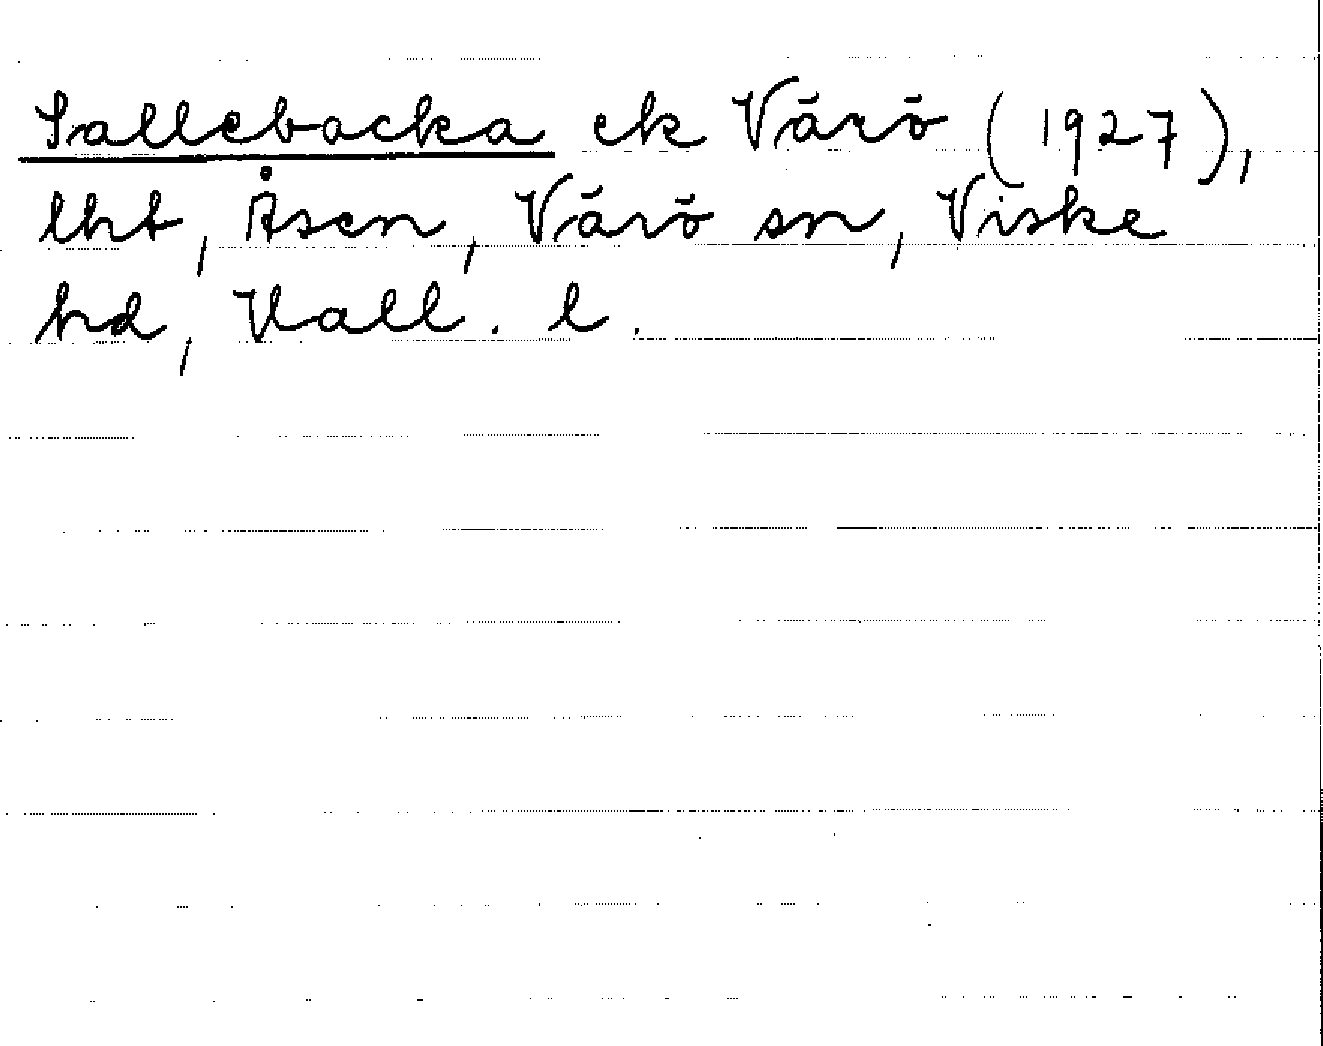 Sallebacka ek Värö (1927),
lht, Åsen, Värö sn, Viske
hd, Hall. l.